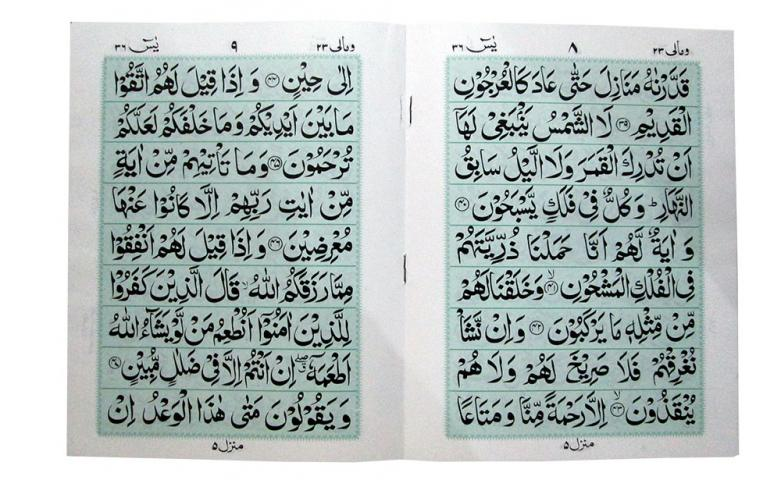 ومالى ٢٣ ٨ يٰسٓ ٣٦
قَدَّرْنٰهُ مَنَازِلَ حَتّٰى عَادَ كَالْعُرْجُوْنِ
الْقَدِيْمِ ۝۳۹ لَا الشَّمْسُ يَنْۢبَغِىْ لَهَاۤ
اَنْ تُدْرِكَ الْقَمَرَ وَلَا الَّيْلُ سَابِقُ
النَّهَارِ ؕ وَكُلٌّ فِىْ فَلَكٍ يَّسْبَحُوْنَ ۝۴۰
وَ اٰيَةٌ لَّهُمْ اَنَّا حَمَلْنَا ذُرِّيَّتَهُمْ
فِى الْفُلْكِ الْمَشْحُوْنِ ۝۴۱ۙ وَخَلَقْنَا لَهُمْ
مِّنْ مِّثْلِهٖ مَا يَرْكَبُوْنَ ۝۴۲ وَاِنْ نَّشَاْ
نُغْرِقْهُمْ فَلَا صَرِيْخَ لَهُمْ وَلَا هُمْ
يُنْقَذُوْنَ ۝۴۳ۙ اِلَّا رَحْمَةً مِّنَّا وَمَتَاعًا
منزل ٥
ومالى ٢٣ ٩ يٰسٓ ٣٦
اِلٰى حِيْنٍ ۝۴۴ وَ اِذَا قِيْلَ لَهُمُ اتَّقُوْا
مَا بَيْنَ اَيْدِيْكُمْ وَمَا خَلْفَكُمْ لَعَلَّكُمْ
تُرْحَمُوْنَ ۝۴۵ وَمَا تَاْتِيْهِمْ مِّنْ اٰيَةٍ
مِّنْ اٰيٰتِ رَبِّهِمْ اِلَّا كَانُوْا عَنْهَا
مُعْرِضِيْنَ ۝۴۶ وَاِذَا قِيْلَ لَهُمْ اَنْفِقُوْا
مِمَّا رَزَقَكُمُ اللّٰهُ ۙ قَالَ الَّذِيْنَ كَفَرُوْا
لِلَّذِيْنَ اٰمَنُوْۤا اَنُطْعِمُ مَنْ لَّوْ يَشَآءُ اللّٰهُ
اَطْعَمَهٗۤ ۖ اِنْ اَنْتُمْ اِلَّا فِىْ ضَلٰلٍ مُّبِيْنٍ ۝۴۷
وَ يَقُوْلُوْنَ مَتٰى هٰذَا الْوَعْدُ اِنْ
منزل ٥